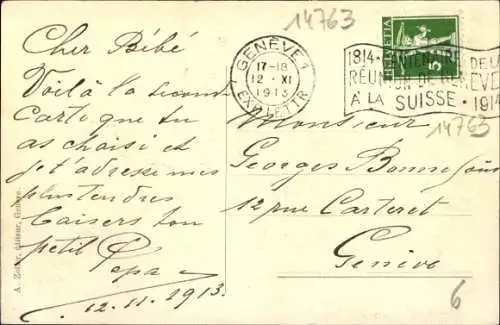 14763
Cher Bébé
Voilà la seconde
carte que tu
as choisi et
je t'adresse mes
plus tendres
baisers ton
petit Papa
12.11.1913.
GENÈVE 1
17-18
12 · XI
1913
EXP. LETTR.
HELVETIA
5
1814 · CENTENAIRE DE LA
RÉUNION DE GENÈVE
À LA SUISSE · 1914
14763
Monsieur
Georges
12 rue Carteret
Genève
6
A. éditeur, Genève.